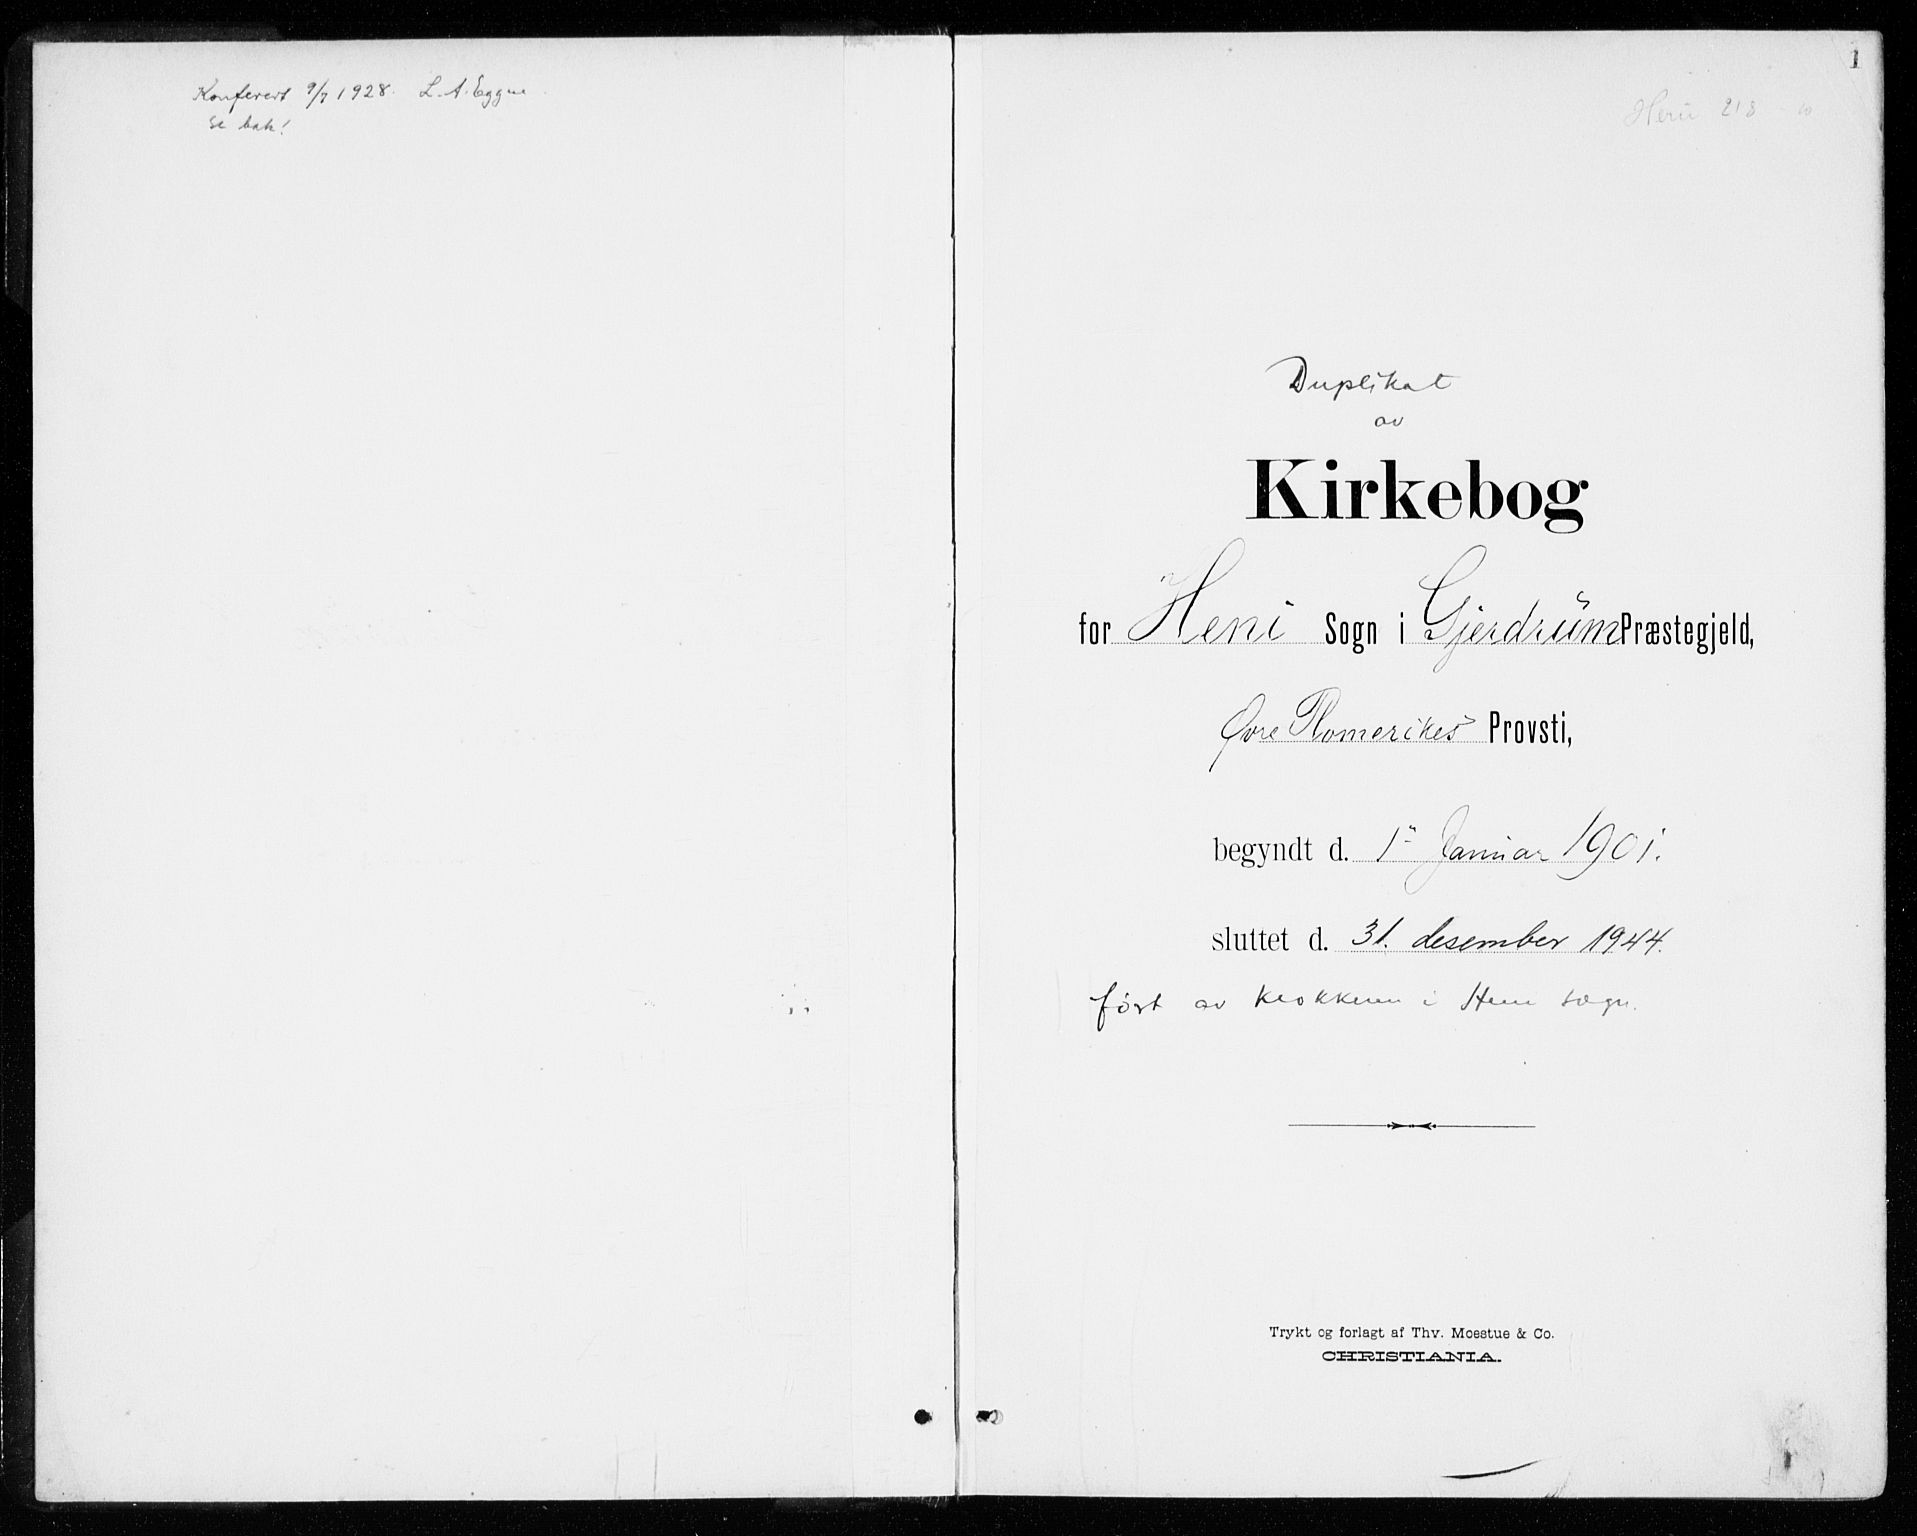 Konferert 9/7 1928. L. A. Eggne
se bak!
1
Heni 218
Duplikat
av
Kirkebog
for Heni Sogn i Gjerdrum Præstegjeld,
Øvre Romerikes Provsti,
begyndt d. 1ᵉ Januar 1901.
sluttet d. 31. desember 1944.
ført av klokkeren i Heni sogn.
Trykt og forlagt af Thv. Moestue & Co.
CHRISTIANIA.